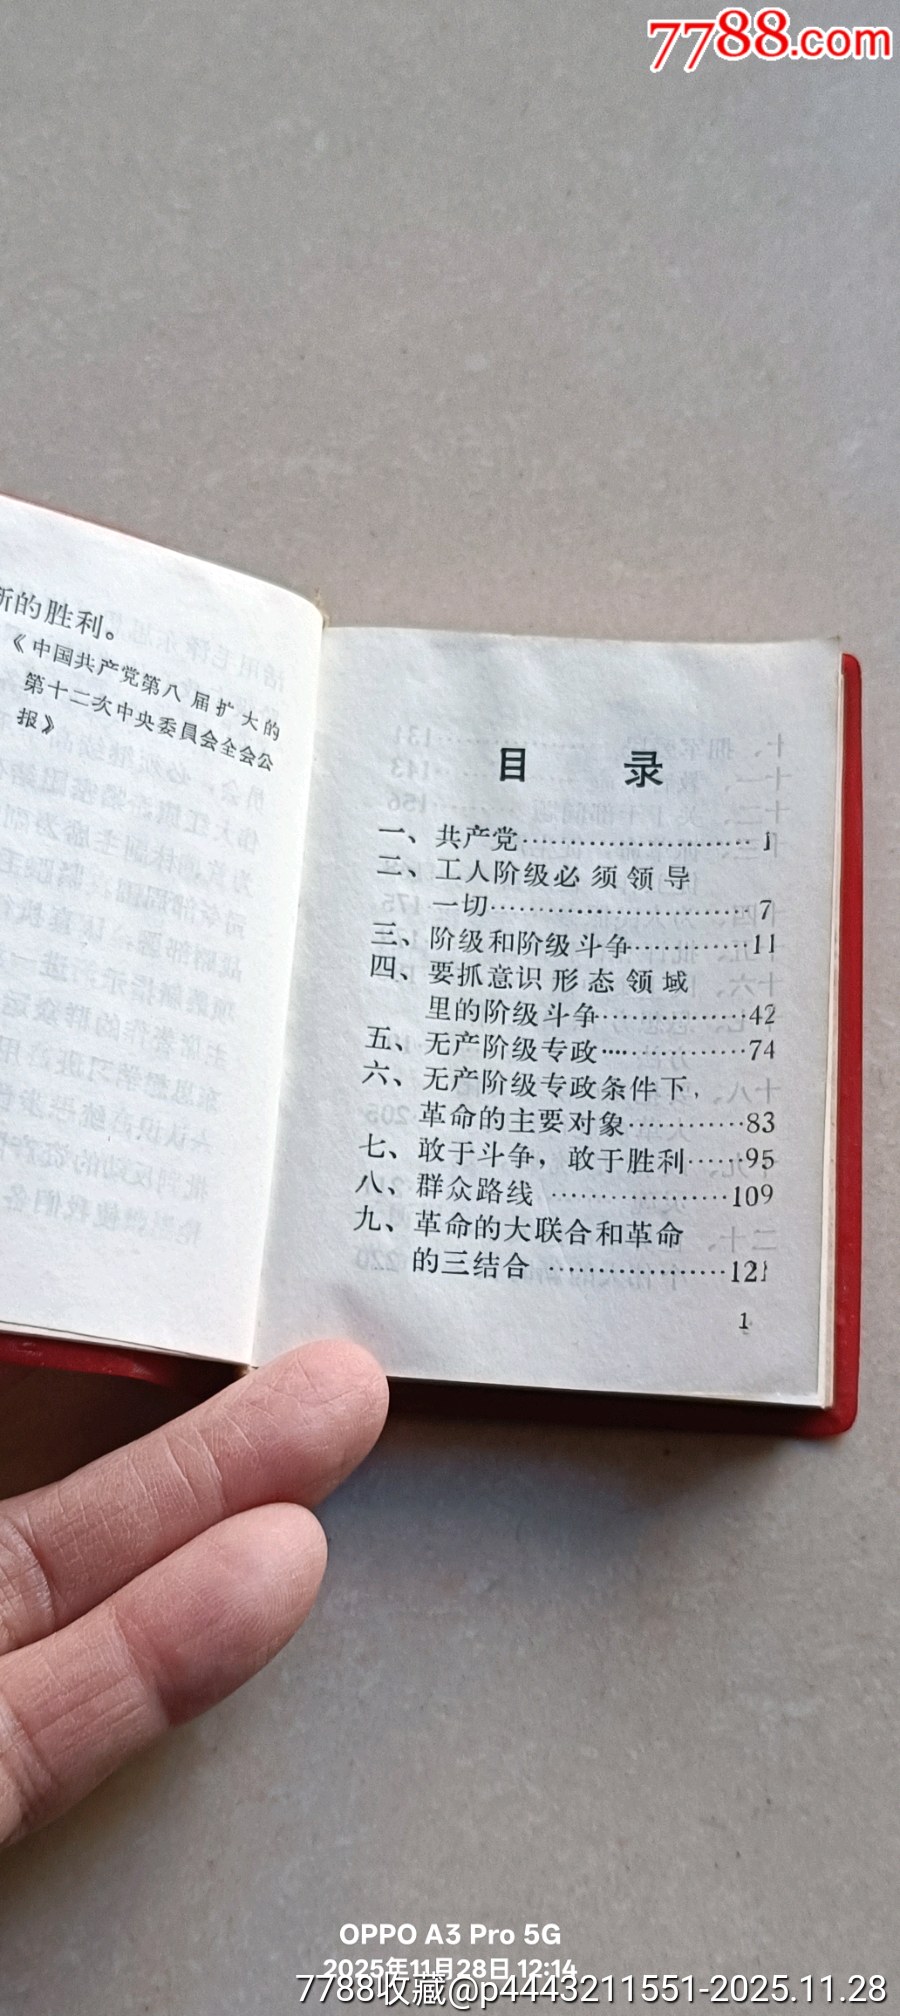 7788.com
新的胜利。
《中国共产党第八届扩大的
第十二次中央委員会全会公
报》
目 录
一、共产党……………………1
二、工人阶级必须领导
一切……………………7
三、阶级和阶级斗争…………11
四、要抓意识形态领域
里的阶级斗争……………42
五、无产阶级专政……………74
六、无产阶级专政条件下,
革命的主要对象…………83
七、敢于斗争，敢于胜利……95
八、群众路线………………109
九、革命的大联合和革命
的三结合………………121
1
OPPO A3 Pro 5G
2025年11月28日 12:14
7788收藏@p4443211551-2025.11.28